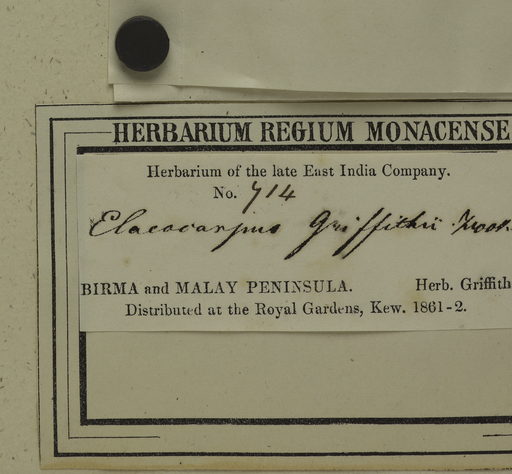 HERBARIUM REGIUM MONACENSE
Herbarium of the late East India Company.
No. 714
Elaeocarpus Griffithii
BIRMA and MALAY PENINSULA. Herb. Griffith
Distributed at the Royal Gardens, Kew. 1861-2.